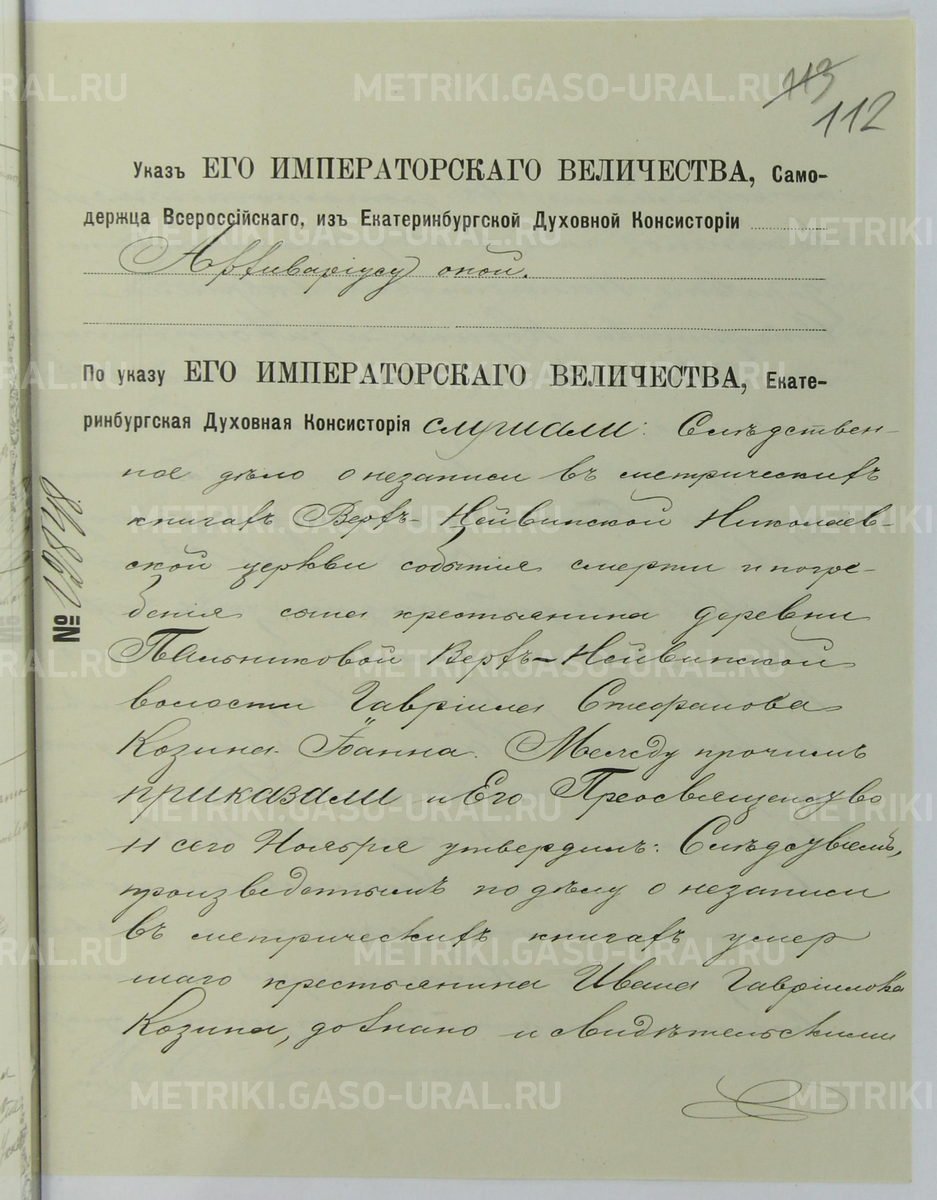 113
112
Указъ ЕГО ИМПЕРАТОРСКАГО ВЕЛИЧЕСТВА, Само-
держца Всероссійскаго, изъ Екатеринбургской Духовной Консисторіи
Архиваріусу оной.
По указу ЕГО ИМПЕРАТОРСКАГО ВЕЛИЧЕСТВА, Екате-
ринбургская Духовная Консисторія слушали: Слѣдствен-
ное дѣло о незаписи въ метрическихъ
книгахъ Верхъ-Нейвинской Николаев-
ской церкви событія смерти и погре-
бенія сына крестьянина деревни
Пальниковой Верхъ-Нейвинской
волости Гавріила Стефанова
Козина Іоанна. Между прочимъ
приказали и Его Преосвященство
11 сего Ноября утвердилъ: Слѣдствіемъ,
произведеннымъ по дѣлу о незаписи
въ метрическихъ книгахъ умер
шаго крестьянина Ивана Гавріилова
Козина, дознано и свидѣтельскими
№
METRIKI.GASO-URAL.RU